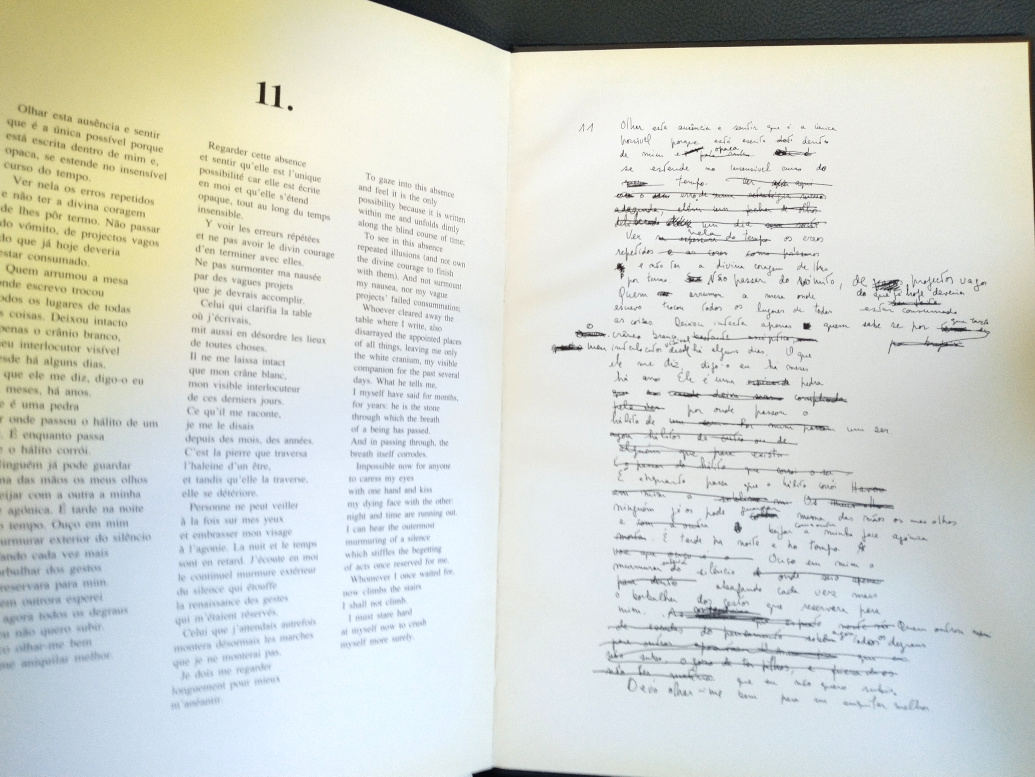 11.
Olhar esta ausência e sentir
que é a única possível porque
está escrita dentro de mim e,
opaca, se estende no insensível
curso do tempo.
Ver nela os erros repetidos
e não ter a divina coragem
de lhes pôr termo. Não passar
do vómito, de projectos vagos
do que já hoje deveria
estar consumado.
Quem arrumou a mesa
onde escrevo trocou
todos os lugares de todas
s coisas. Deixou intacto
penas o crânio branco,
eu interlocutor visível
esde há alguns dias.
que ele me diz, digo-o eu
meses, há anos.
e é uma pedra
r onde passou o hálito de um
. E enquanto passa
e o hálito corrói.
inguém já pode guardar
ma das mãos os meus olhos
eijar com a outra a minha
agónica. É tarde na noite
tempo. Ouço em mim
urmurar exterior do silêncio
ando cada vez mais
orbulhar dos gestos
reservara para mim.
em outrora esperei
agora todos os degraus
u não quero subir.
o olhar-me bem
me aniquilar melhor.
Regarder cette absence
et sentir qu'elle est l'unique
possibilité car elle est écrite
en moi et qu'elle s'étend
opaque, tout au long du temps
insensible.
Y voir les erreurs répétées
et ne pas avoir le divin courage
d'en terminer avec elles.
Ne pas surmonter ma nausée
par des vagues projets
que je devrais accomplir.
Celui qui clarifia la table
où j'écrivais,
mit aussi en désordre les lieux
de toutes choses.
Il ne me laissa intact
que mon crâne blanc,
mon visible interlocuteur
de ces derniers jours.
Ce qu'il me raconte,
je me le disais
depuis des mois, des années.
C'est la pierre que traversa
l'haleine d'un être,
et tandis qu'elle la traverse,
elle se détériore.
Personne ne peut veiller
à la fois sur mes yeux
et embrasser mon visage
à l'agonie. La nuit et le temps
sont en retard. J'écoute en moi
le continuel murmure extérieur
du silence qui étouffe
la renaissance des gestes
qui m'étaient réservés.
Celui que j'attendais autrefois
montera désormais les marches
que je ne monterai pas.
Je dois me regarder
longuement pour mieux
m'anéantir.
To gaze into this absence
and feel it is the only
possibility because it is written
within me and unfolds dimly
along the blind course of time;
To see in this absence
repeated illusions (and not own
the divine courage to finish
with them). And not surmount
my nausea, nor my vague
projects' failed consummation:
Whoever cleared away the
table where I write, also
disarrayed the appointed places
of all things, leaving me only
the white cranium, my visible
companion for the past several
days. What he tells me,
I myself have said for months,
for years: he is the stone
through which the breath
of a being has passed.
And in passing through, the
breath itself corrodes.
Impossible now for anyone
to caress my eyes
with one hand and kiss
my dying face with the other:
night and time are running out.
I can hear the outermost
murmuring of a silence
which stifles the begetting
of acts once reserved for me.
Whomever I once waited for,
now climbs the stairs
I shall not climb.
I must stare hard
at myself now to crush
myself more surely.
11
Olhar esta ausência e sentir que é a única
possível porque está escrita dentro
de mim e opaca
se estende no insensível curso do
tempo.
Ver nela os erros
repetidos
e não ter a divina coragem de lhes
pôr termo. Não passar do vómito, de projectos vagos
do que já hoje deveria
estar consumado
Quem arrumou a mesa onde
escrevo trocou todos os lugares de todas
as coisas. Deixou intacto apenas
o crânio branco
meu interlocutor visível desde há alguns dias. O que
ele me diz, digo-o eu há meses
há anos. Ele é uma pedra
por onde passou o
hálito de um ser
E enquanto passa que o hálito corrói
ninguém já pode guardar numa das mãos os meus olhos
e beijar com a outra a minha face agónica
É tarde na noite e no tempo.
Ouço em mim o
murmurar exterior do silêncio
abafando cada vez mais
o borbulhar dos gestos que reservara para
mim. Quem outrora
todos os degraus
que eu não quero subir.
Devo olhar-me bem para me aniquilar melhor